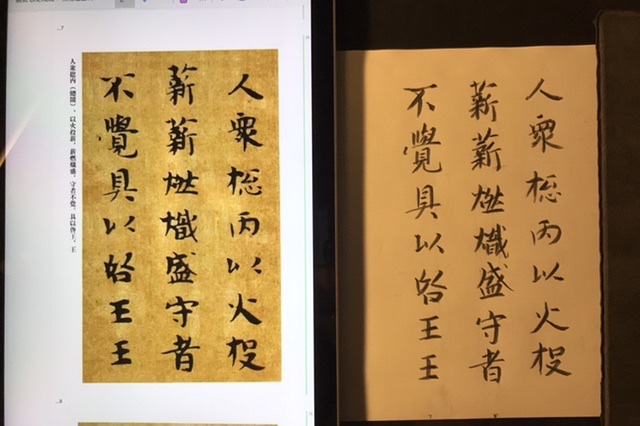 人衆捴內以火投
薪薪燃熾盛守者
不覺具以啓王王
人衆捴內以火投
薪薪燃熾盛守者
不覺具以啓王王
以火投薪，薪燃熾盛，守者不覺。具以啓王，王
7
8